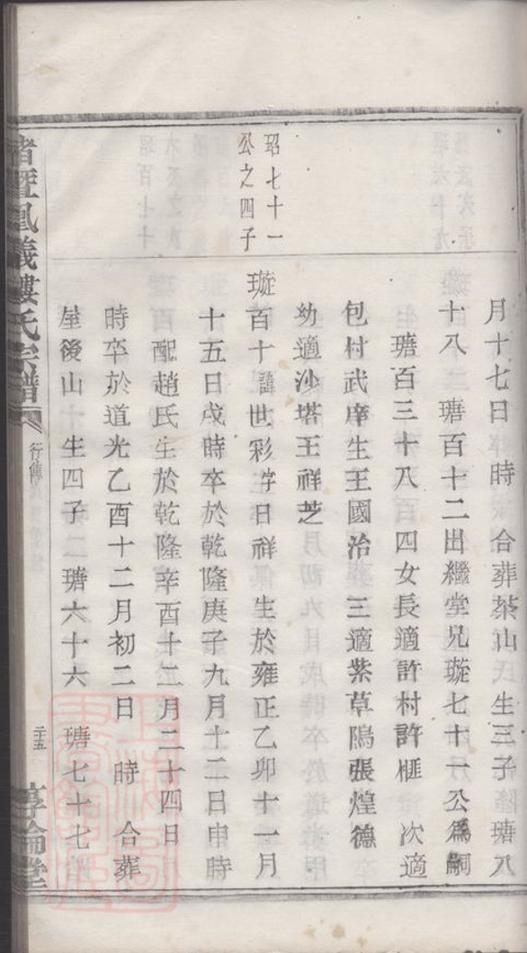 月十七日　時　合葬茶山　氏生三子　瑭八
十八　瑭百十二出繼堂兄璇七十一公為嗣
瑭百三十八　四女長適許村許榧　次適
包村武庠生王國治　三適紫草隝張煌德
幼適沙塔王祥芝
昭七十一
公之四子
璇百十諱世彩字日祥　生於雍正乙卯十一月
十五日戌時卒於乾隆庚子九月十二日申時
配趙氏生於乾隆辛酉十二月二十四日
時卒於道光乙酉十二月初二日　時　合葬
屋後山　生四子　瑭六十六　瑭七十七
諸暨鳳儀樓氏宗譜
行傳
二十五
享倫堂